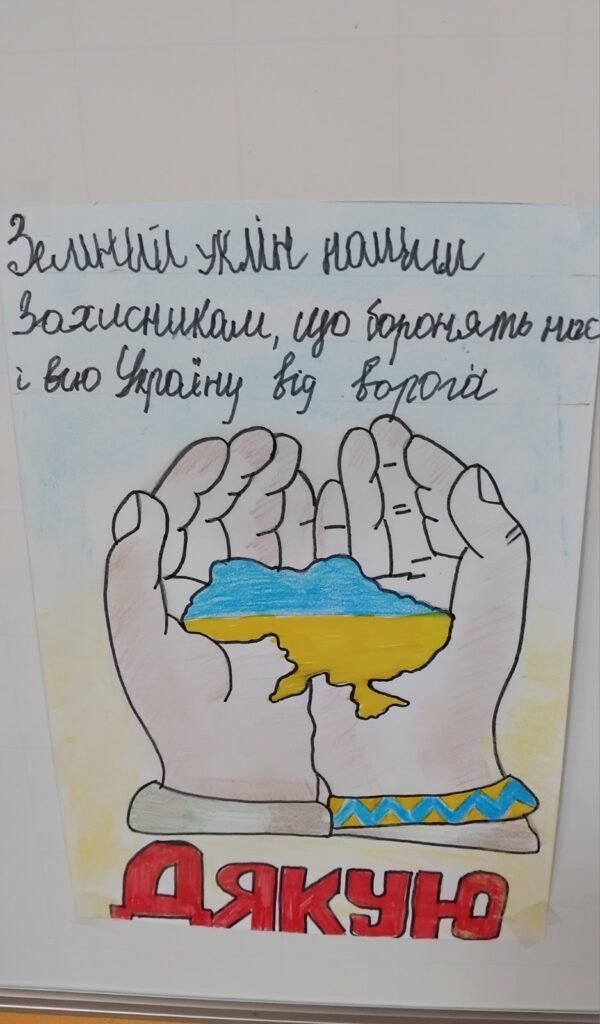 Земний уклін нашим
Захисникам, що боронять нас
і всю Україну від ворога
ДЯКУЮ